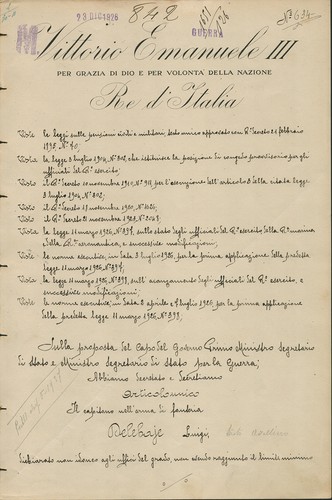 23 DIC 1926
842
GUERRA
M
Vittorio Emanuele III
PER GRAZIA DI DIO E PER VOLONTÀ DELLA NAZIONE
Re d'Italia
Viste le leggi sulle pensioni civili e militari, testo unico approvato con R. Decreto 21 febbraio
1895, N° 70;
Vista la legge 3 luglio 1904, N° 302, che istituisce la posizione di congedo provvisorio per gli
ufficiali del R. esercito;
Visto il R. Decreto 10 novembre 1904, N° 911, per l'esecuzione dell'articolo 3 della citata legge
3 luglio 1904, N° 302;
Visto il R. Decreto 11 novembre 1920, N°
Visto il R. Decreto 31
Vista la legge 11 marzo 1926, N° 397, sullo stato degli ufficiali del R. esercito, della R. marina
e della R. aeronautica, e successive modificazioni;
Viste le norme esecutive, in data 3 luglio 1926, per la prima applicazione della predetta
legge 11 marzo 1926, N° 397;
Vista la legge 11 marzo 1926, N° 398, sull'avanzamento degli ufficiali del R. esercito, e
successive modificazioni;
Viste le norme esecutive, in data 3 aprile e 7 luglio 1926, per la prima applicazione
della predetta legge 11 marzo 1926, N° 398;
Sulla proposta del Capo del Governo Primo Ministro segretario
di Stato e Ministro segretario di Stato per la Guerra;
Abbiamo decretato e decretiamo
Articolo unico
Il capitano nell'arma di fanteria
Luigi,
dichiarato non idoneo agli uffici del grado, non avendo raggiunto il limite minimo